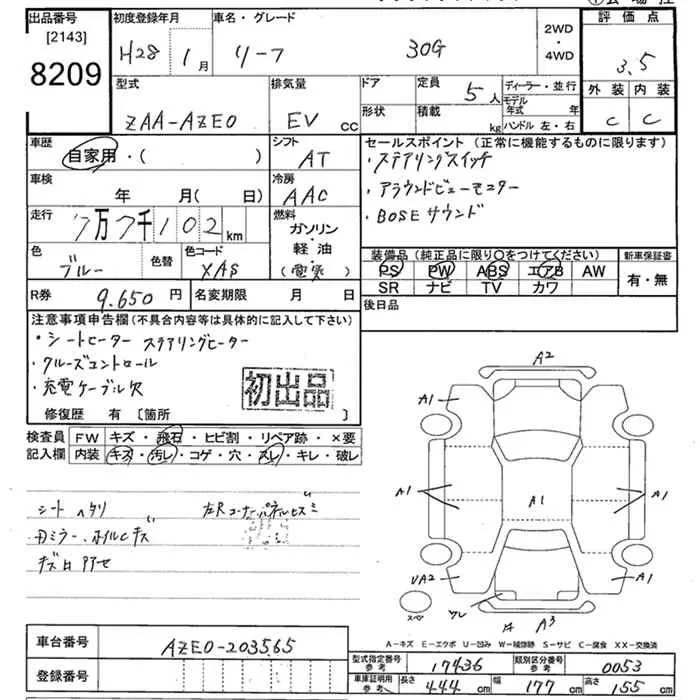 出品番号 初度登録年月 車名・グレード 評価点
[2143]
8209
H28 1月 リーフ 30G 2WD・4WD 3.5
型式 排気量 ドア 定員 ディーラー・並行 外装 内装
ZAA-AZE0 EV cc 5人 モデル年式 年 C C
形状 積載 kg ハンドル 左・右
車歴 シフト セールスポイント(正常に機能するものに限ります)
自家用・( ) AT ・ステアリングスイッチ
車検 冷房 ・アラウンドビューモニター
年 月(日) AAC ・BOSEサウンド
走行 燃料
7万7千102km ガソリン・軽油・(電気)
色 色替 色コード 装備品(純正品に限り○をつけてください) 新車保証書
ブルー XAS PS PW ABS エアB AW 有・無
SR ナビ TV カワ
R券 9.650円 名変期限 月 日 後日品
注意事項申告欄(不具合内容等は具体的に記入して下さい)
・シートヒーター ステアリングヒーター
・クルーズコントロール
・充電ケーブル欠
初出品
修復歴 有 [箇所 ]
検査員記入欄 FW キズ・飛石・ヒビ割・リペア跡・×要
内装 キズ・汚レ・コゲ・穴・スレ・キレ・破レ
シート ヘタリ 左Rコーナーパネルヒズミ
ホイルCキズ
A2
A1
A1 A1 A1
UA2 A1
スペア
A3
A-キズ E-エクボ U-凹み W-補修跡 S-サビ C-腐食 XX-交換済
車台番号 AZE0-203565
登録番号
型式指定番号 参考 17436 類別区分番号 参考 0053
車庫証明用 参考 長さ 444cm 幅 177cm 高さ 155cm